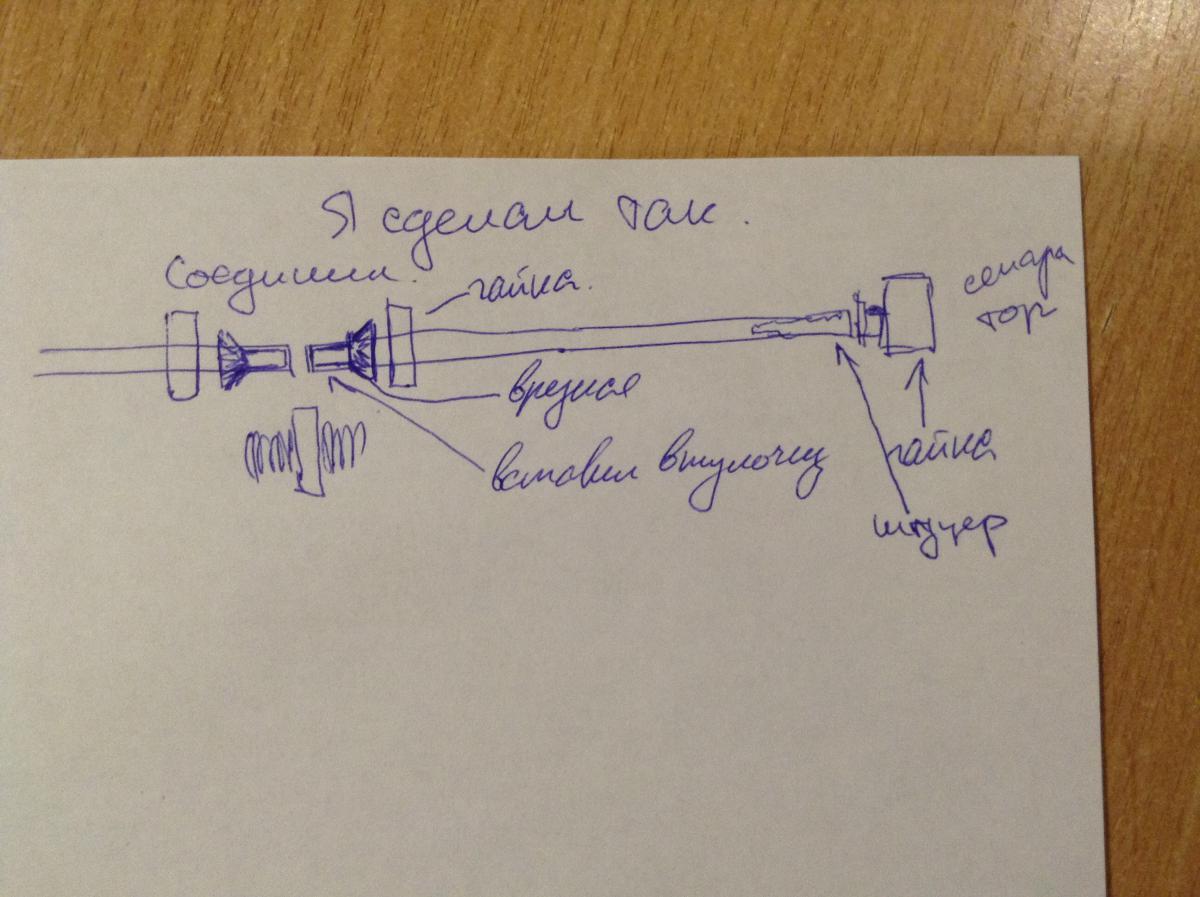 Я сделал так.
Соединил.
гайка.
сепара
тор
врезная
вставил втулочку
гайка
штуцер